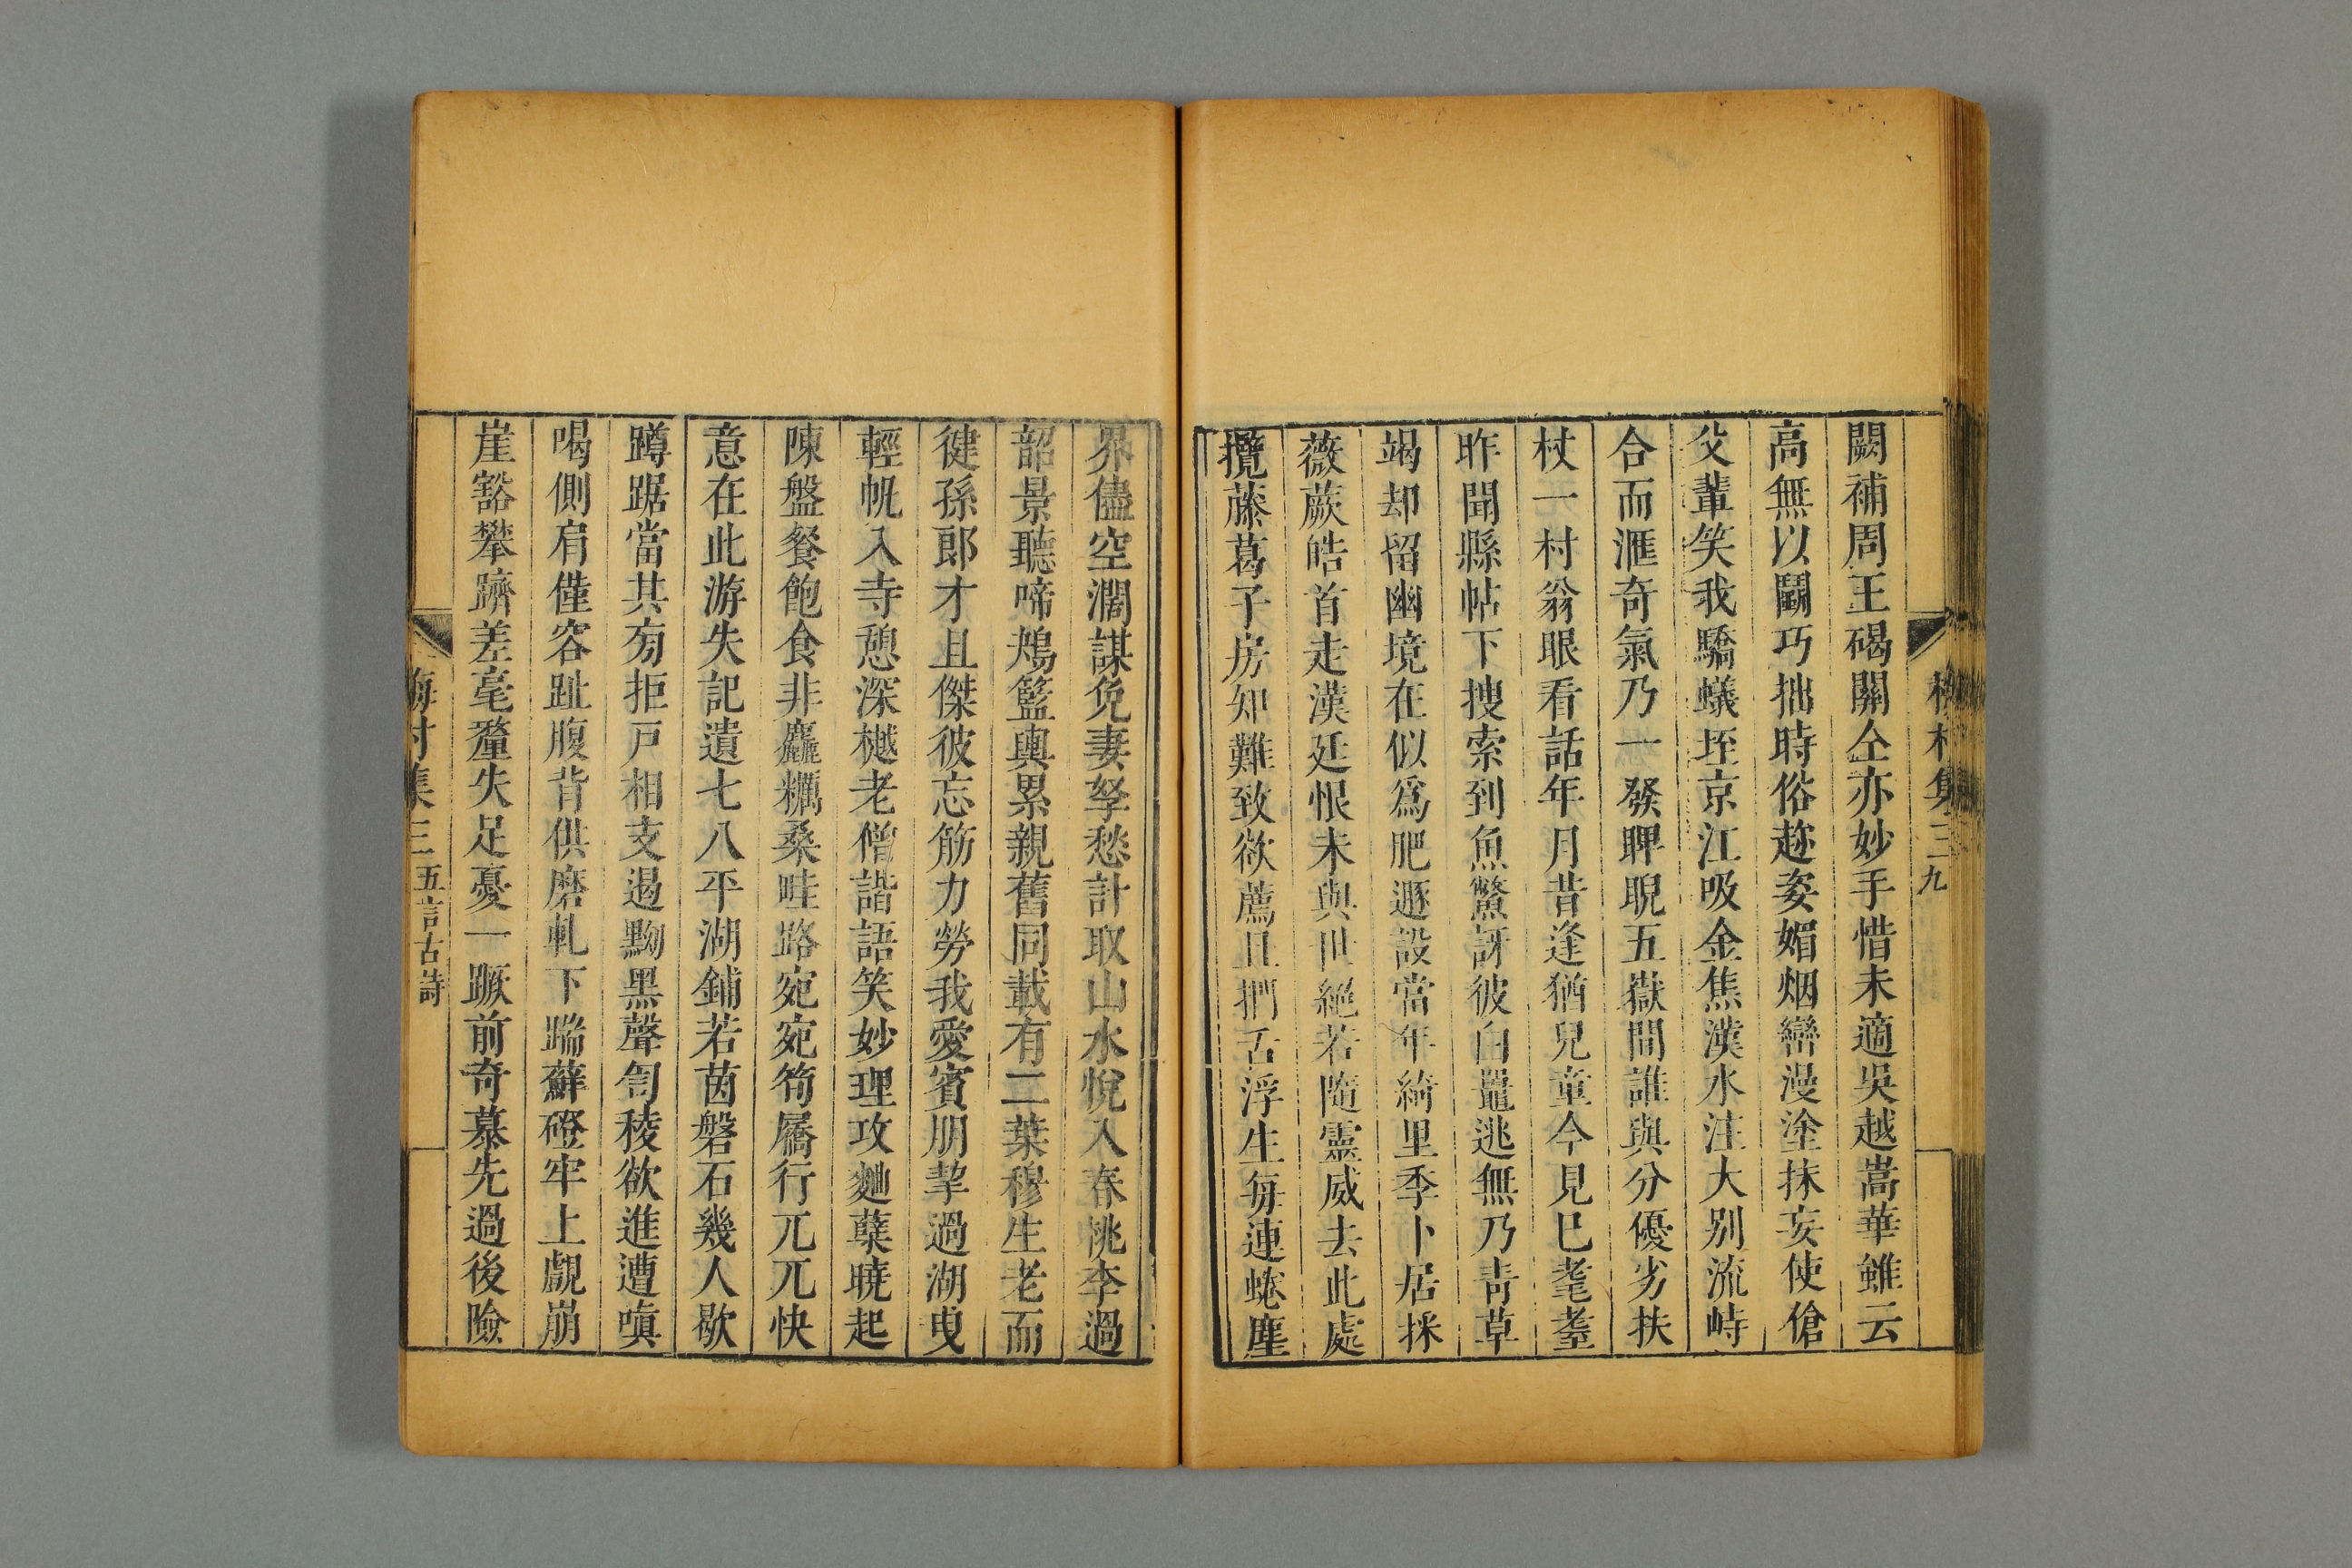 梅村集三 九
闕補周王碣關仝亦妙手惜未適吳越嵩華雖云
高無以鬭巧拙時俗趂姿媚烟巒漫塗抹妄使傖
父輩笑我驕蟻垤京江吸金焦漢水注大别流峙
合而滙奇氣乃一發睥睨五嶽間誰與分優劣扶
杖一村翁眼看話年月昔逢猶兒童今見已耄耋
昨聞縣帖下搜索到魚鱉訝彼白黿逃無乃靑草
竭却留幽境在似爲肥遯設當年綺里季卜居採
薇蕨皓首走漢廷恨未與世絕若隨靈威去此處
攬藤葛子房知難致欲薦且捫舌浮生每連蜷塵
界儘空濶謀免妻孥愁計取山水悅入春桃李過
韶景聽啼鴂籃輿累親舊同載有二葉穆生老而
健孫郎才且傑彼忘筋力勞我愛賓朋挈過湖曳
輕帆入寺憩深樾老僧諧語笑妙理攻麯櫱曉起
陳盤餐飽食非麤糲桑畦路宛宛筍屩行兀兀快
意在此游失記遺七八平湖鋪若茵磐石幾人歇
蹲踞當其旁拒戸相支遏黝黑聲訇稜欲進遭嗔
喝側肩僅容趾腹背供磨軋下踹蘚磴牢上覷崩
崖豁攀躋差毫釐失足憂一蹶前奇慕先過後險
梅村集三 五言古詩